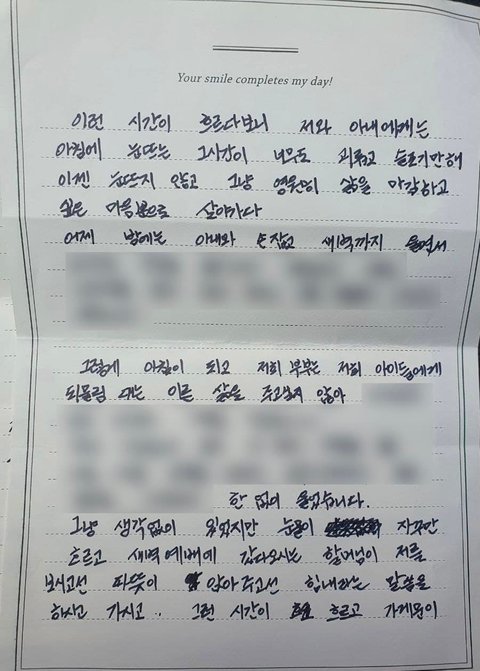 Your smile completes my day!
이런 시간이 흐르다보니 저와 아내에게는
아침에 눈뜨는 그시간이 너무도 괴롭고 슬프기만해
이젠 눈뜨지 않고 그냥 영원히 삶을 마감하고
싶은 마음뿐으로 살아가다
어제 밤에는 아내와 손잡고 새벽까지 울면서
그렇게 아침이 되고 저희 부부는 저희 아이들에게
되물림 되는 이런 삶을 주고싶지 않아
한 없이 울었습니다.
그냥 생각없이 있었지만 눈물이 자꾸만
흐르고 새벽예배에 갔다오시는 할머님이 저를
보시고선 따뜻이 안아주고선 힘내라는 말씀을
하시고 가시고.. 그런 시간이 흐르고 가게문이